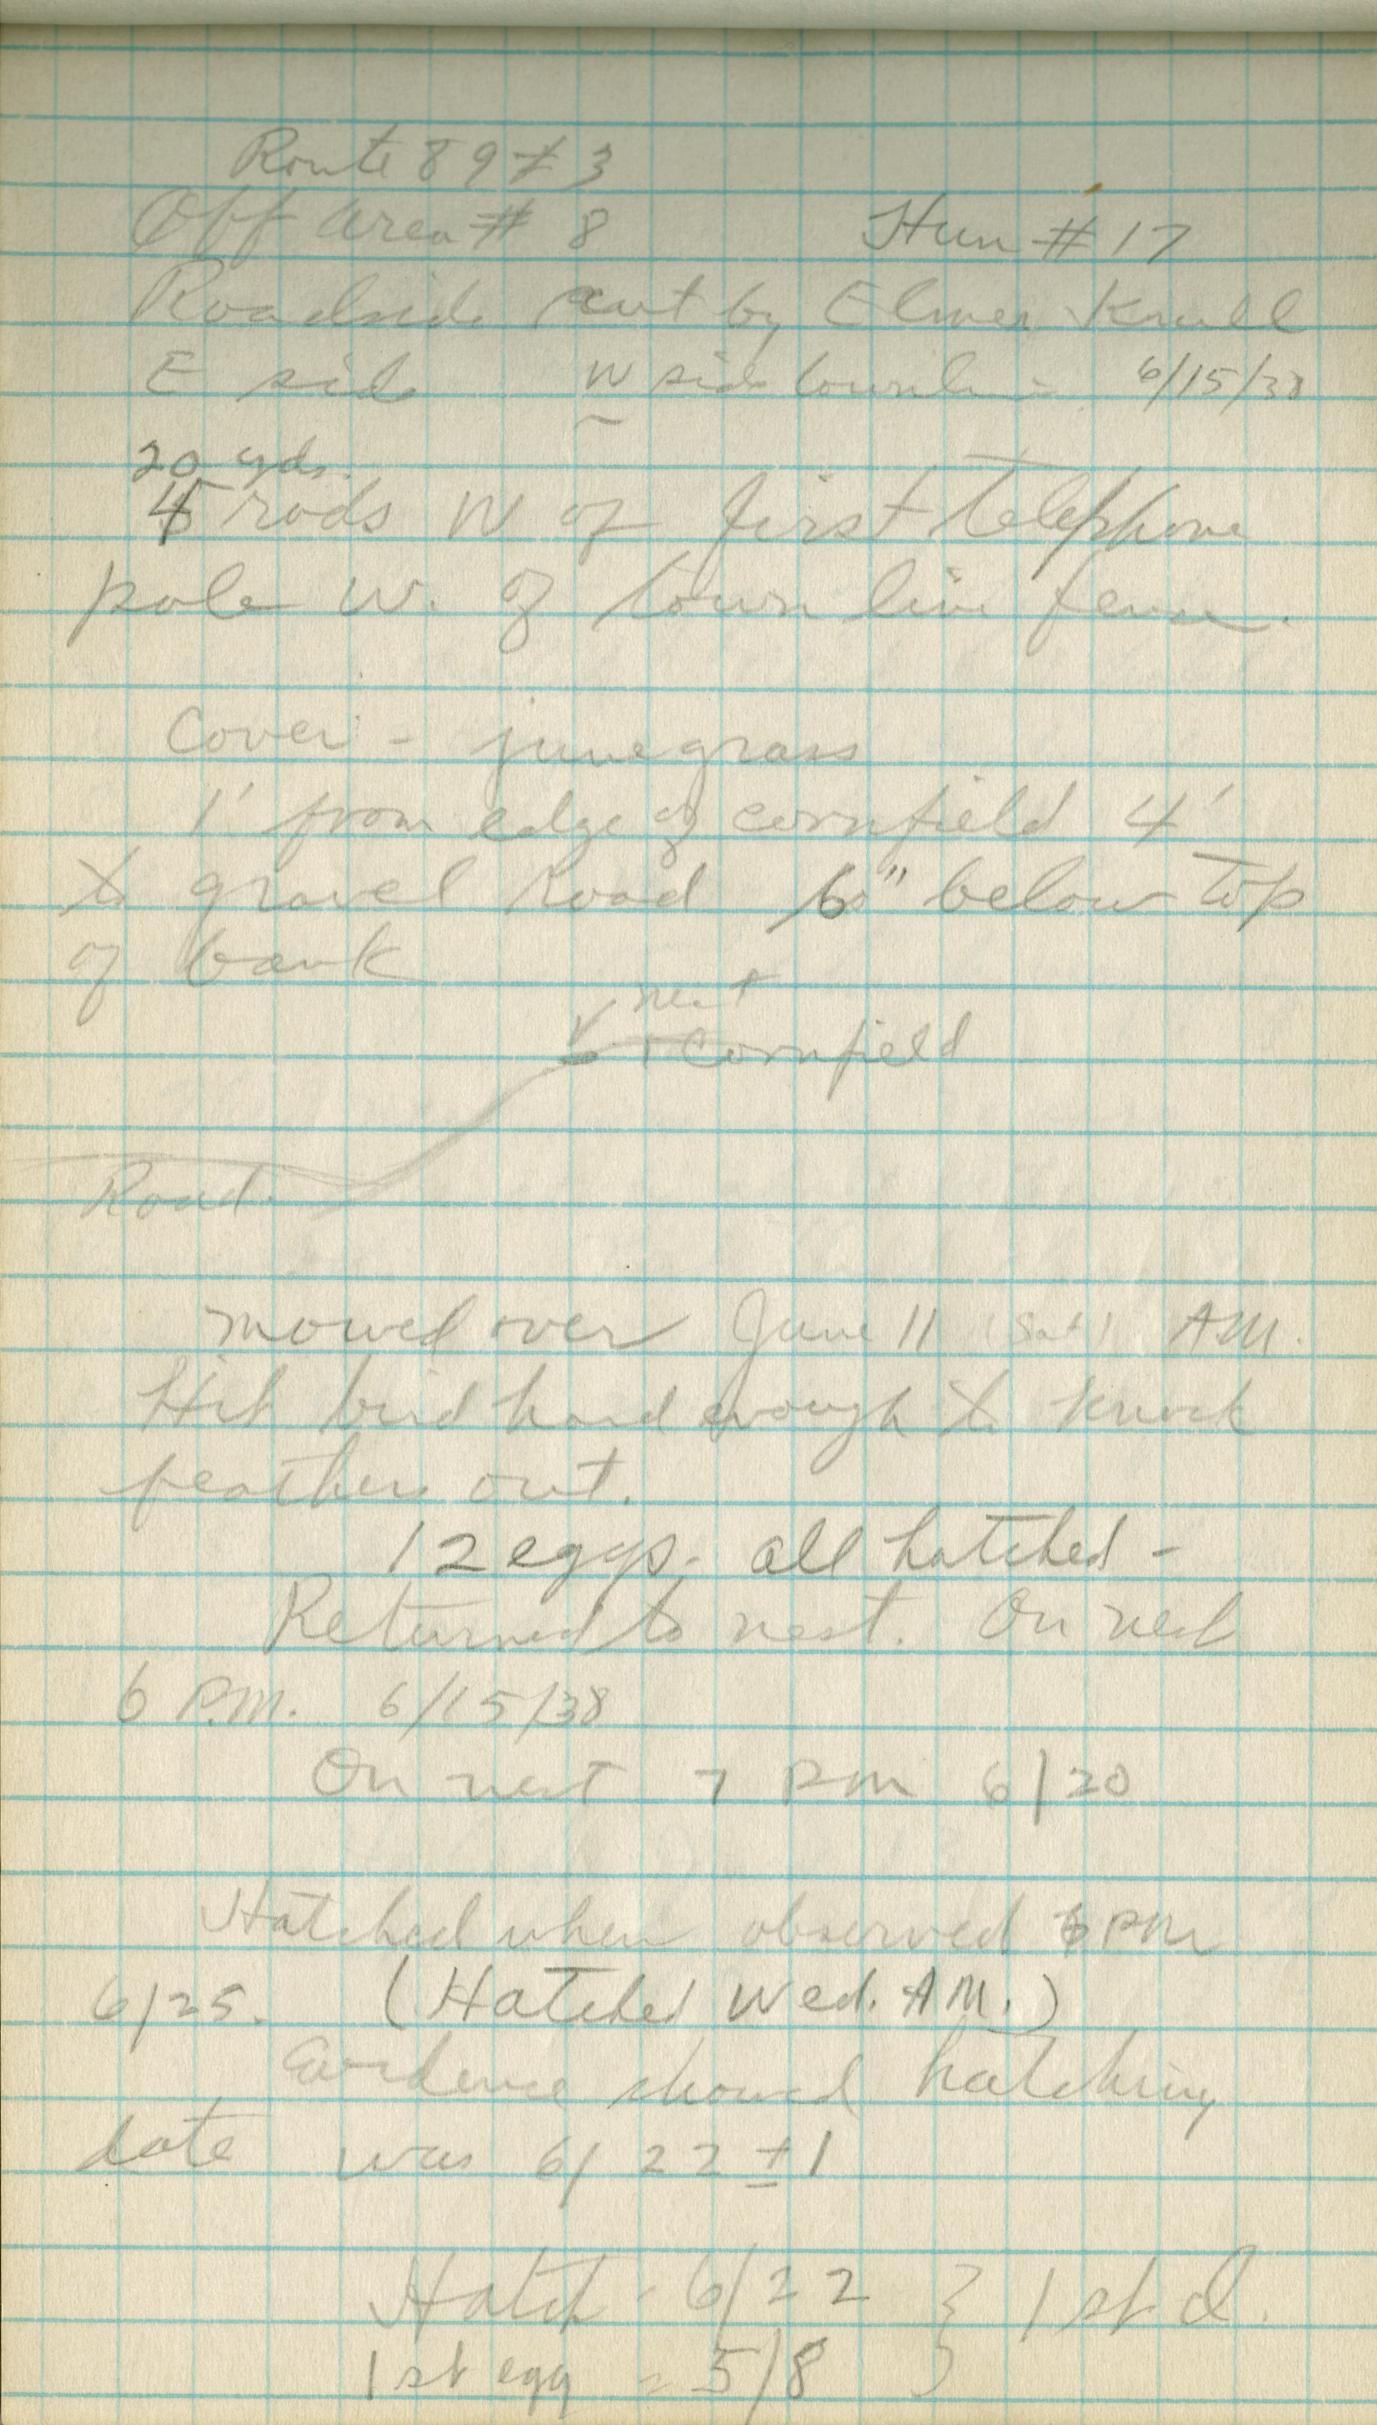 Route 89 # 3
Off area # 8 Hun # 17
Roadside cut by Elmer Krull
E side W side townline 6/15/38
20 yds.
4 rods W of first telephone
pole W. of town line fence.
Cover - junegrass
1' from edge of cornfield 4'
to gravel road 6" below top
of bank
nest
Cornfield
Road
mowed over June 11 (Sat) AM.
Hit bird hard enough to knock
feathers out.
12 eggs - all hatched -
Returned to nest. On nest
6 P.M. 6/15/38
On nest 7 PM 6/20
Hatched when observed 6 PM
6/25. (Hatched Wed. A.M.)
Evidence showed hatching
date was 6/22 ± 1
Hatch - 6/22 } 1st
1st egg = 5/8